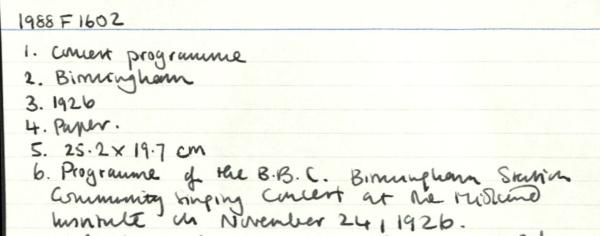 1988 F 1602
1. Concert programme
2. Birmingham
3. 1926
4. Paper.
5. 25.2 x 19.7 cm
6. Programme of the B.B.C. Birmingham Station
Community Singing Concert at the Midland
Institute on November 24, 1926.